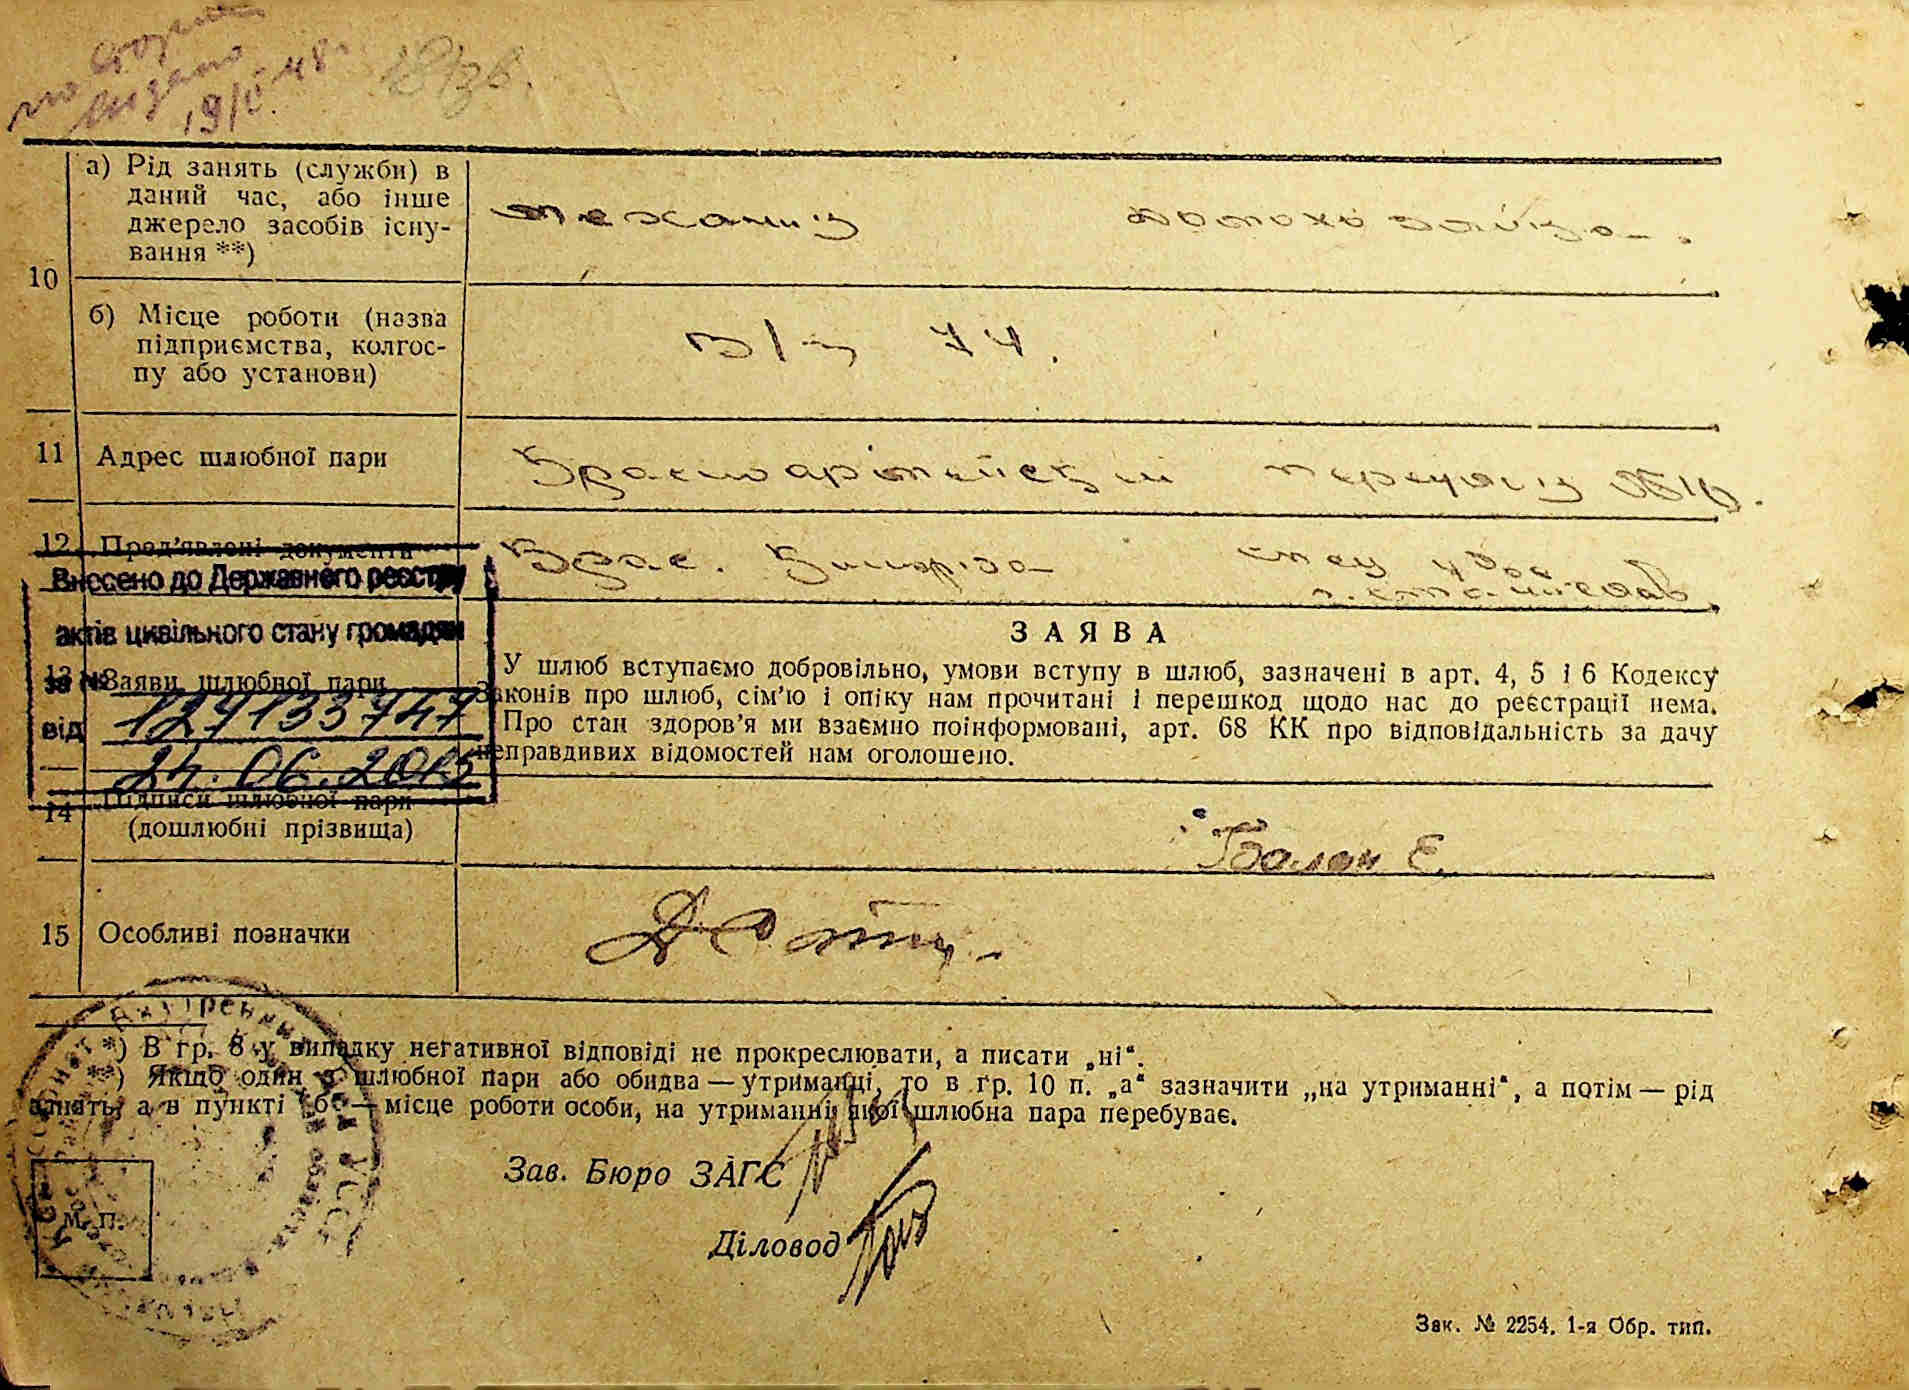 видано
а) Рід занять (служби) в
даний час, або інше
джерело засобів існу-
вання **)
механик домохозяйка.
10
б) Місце роботи (назва
підприємства, колгос-
пу або установи)
в/ч 74.
11 Адрес шлюбної пари
Красноармейский переулок №10.
12 Пред’явлені документи
Внесено до Державного реєстру
актів цивільного стану громадян
за №
127133747
від
24.06.2015
13 Заяви шлюбної пари
ЗАЯВА
У шлюб вступаємо добровільно, умови вступу в шлюб, зазначені в арт. 4, 5 і 6 Кодексу
Законів про шлюб, сім’ю і опіку нам прочитані і перешкод щодо нас до реєстрації нема.
Про стан здоров’я ми взаємно поінформовані, арт. 68 КК про відповідальність за дачу
неправдивих відомостей нам оголошено.
14 Підписи шлюбної пари
(дошлюбні прізвища)
Балан Е.
15 Особливі позначки
*) В гр. 8 у випадку негативної відповіді не прокреслювати, а писати „ні“.
**) Якщо один з шлюбної пари або обидва — утриманці, то в гр. 10 п. „а“ зазначити „на утриманні“, а потім — рід
занять, а в пункті „б“ — місце роботи особи, на утриманні якої шлюбна пара перебуває.
Зав. Бюро ЗАГС
Діловод
М. П.
Зак. № 2254. 1-я Обр. тип.